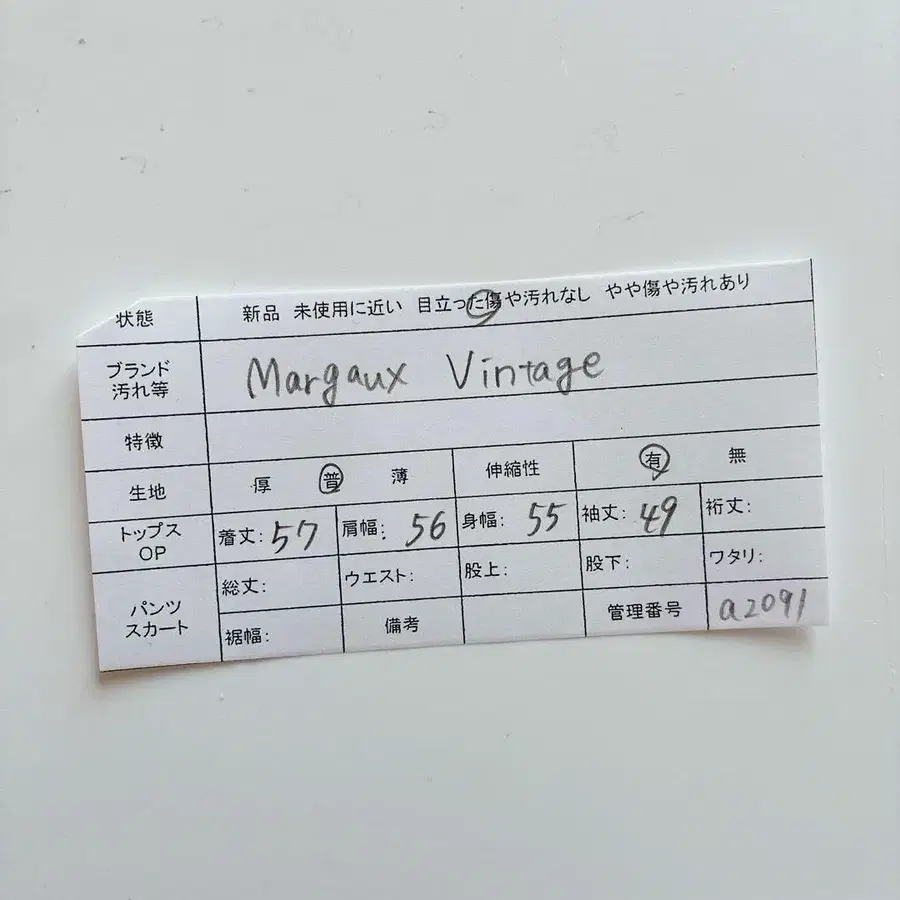 状態 新品 未使用に近い 目立った傷や汚れなし やや傷や汚れあり
ブランド 汚れ等 Margaux Vintage
特徴
生地 厚 普 薄 伸縮性 有 無
トップス OP 着丈: 57 肩幅: 56 身幅: 55 袖丈: 49 裄丈:
パンツ スカート 総丈: ウエスト: 股上: 股下: ワタリ:
裾幅: 備考 管理番号 a2091